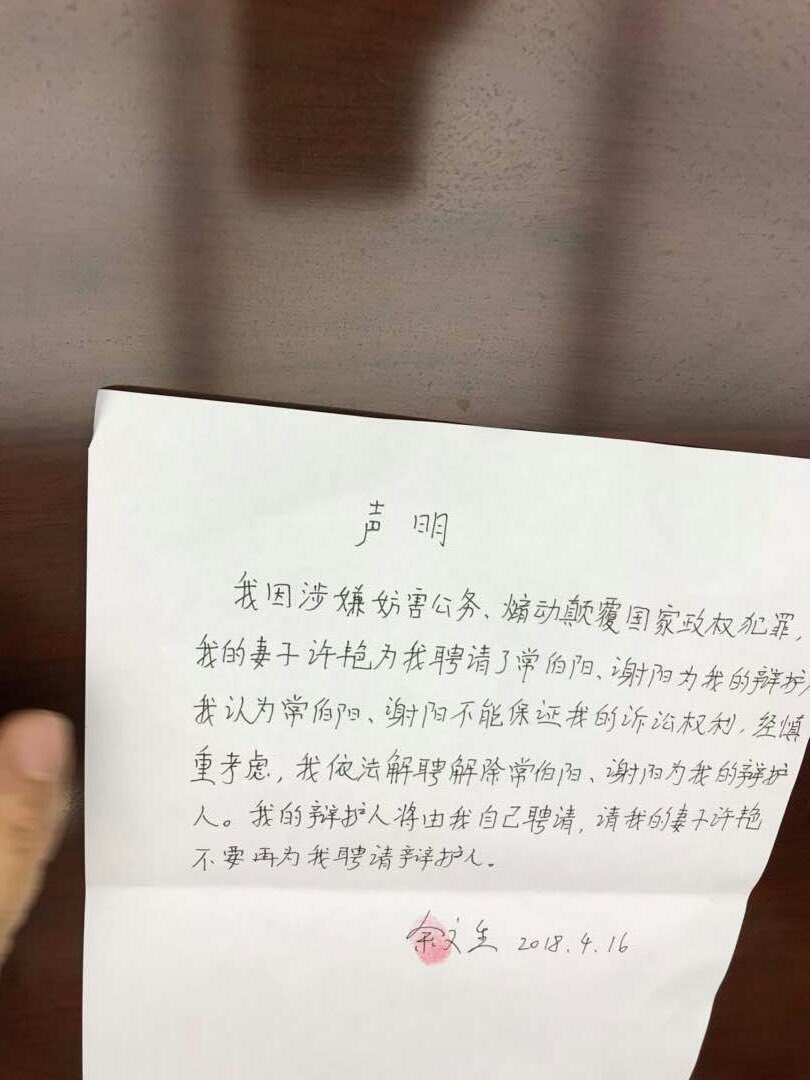 声明
我因涉嫌妨害公务、煽动颠覆国家政权犯罪,
我的妻子许艳为我聘请了常伯阳、谢阳为我的辩护人
我认为常伯阳、谢阳不能保证我的诉讼权利,经慎
重考虑,我依法解聘解除常伯阳、谢阳为我的辩护
人。我的辩护人将由我自己聘请,请我的妻子许艳
不要再为我聘请辩护人。
余文生 2018.4.16